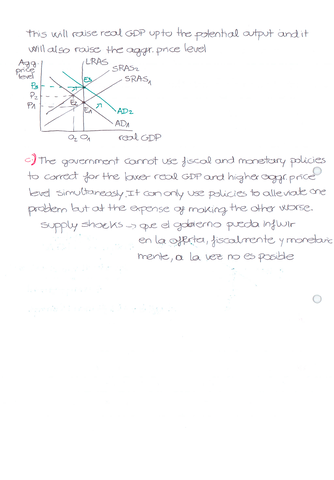 This will raise real GDP up to the potential output and it
will also raise the aggr. price level
Aggr.
price
level
LRAS
SRAS₂
SRAS₁
P₃
E₃
P₂
E₂
P₁
E₁
AD₂
AD₁
O₂ O₁
real GDP
c) The government cannot use fiscal and monetary policies
to correct for the lower real GDP and higher aggr. price
level simultaneasly. It can only use policies to alleviate one
problem but at the expense of making the other worse.
supply shocks → que el gobierno pueda influir
en la oferta, fiscalmente y monetaria
mente, a la vez no es posible